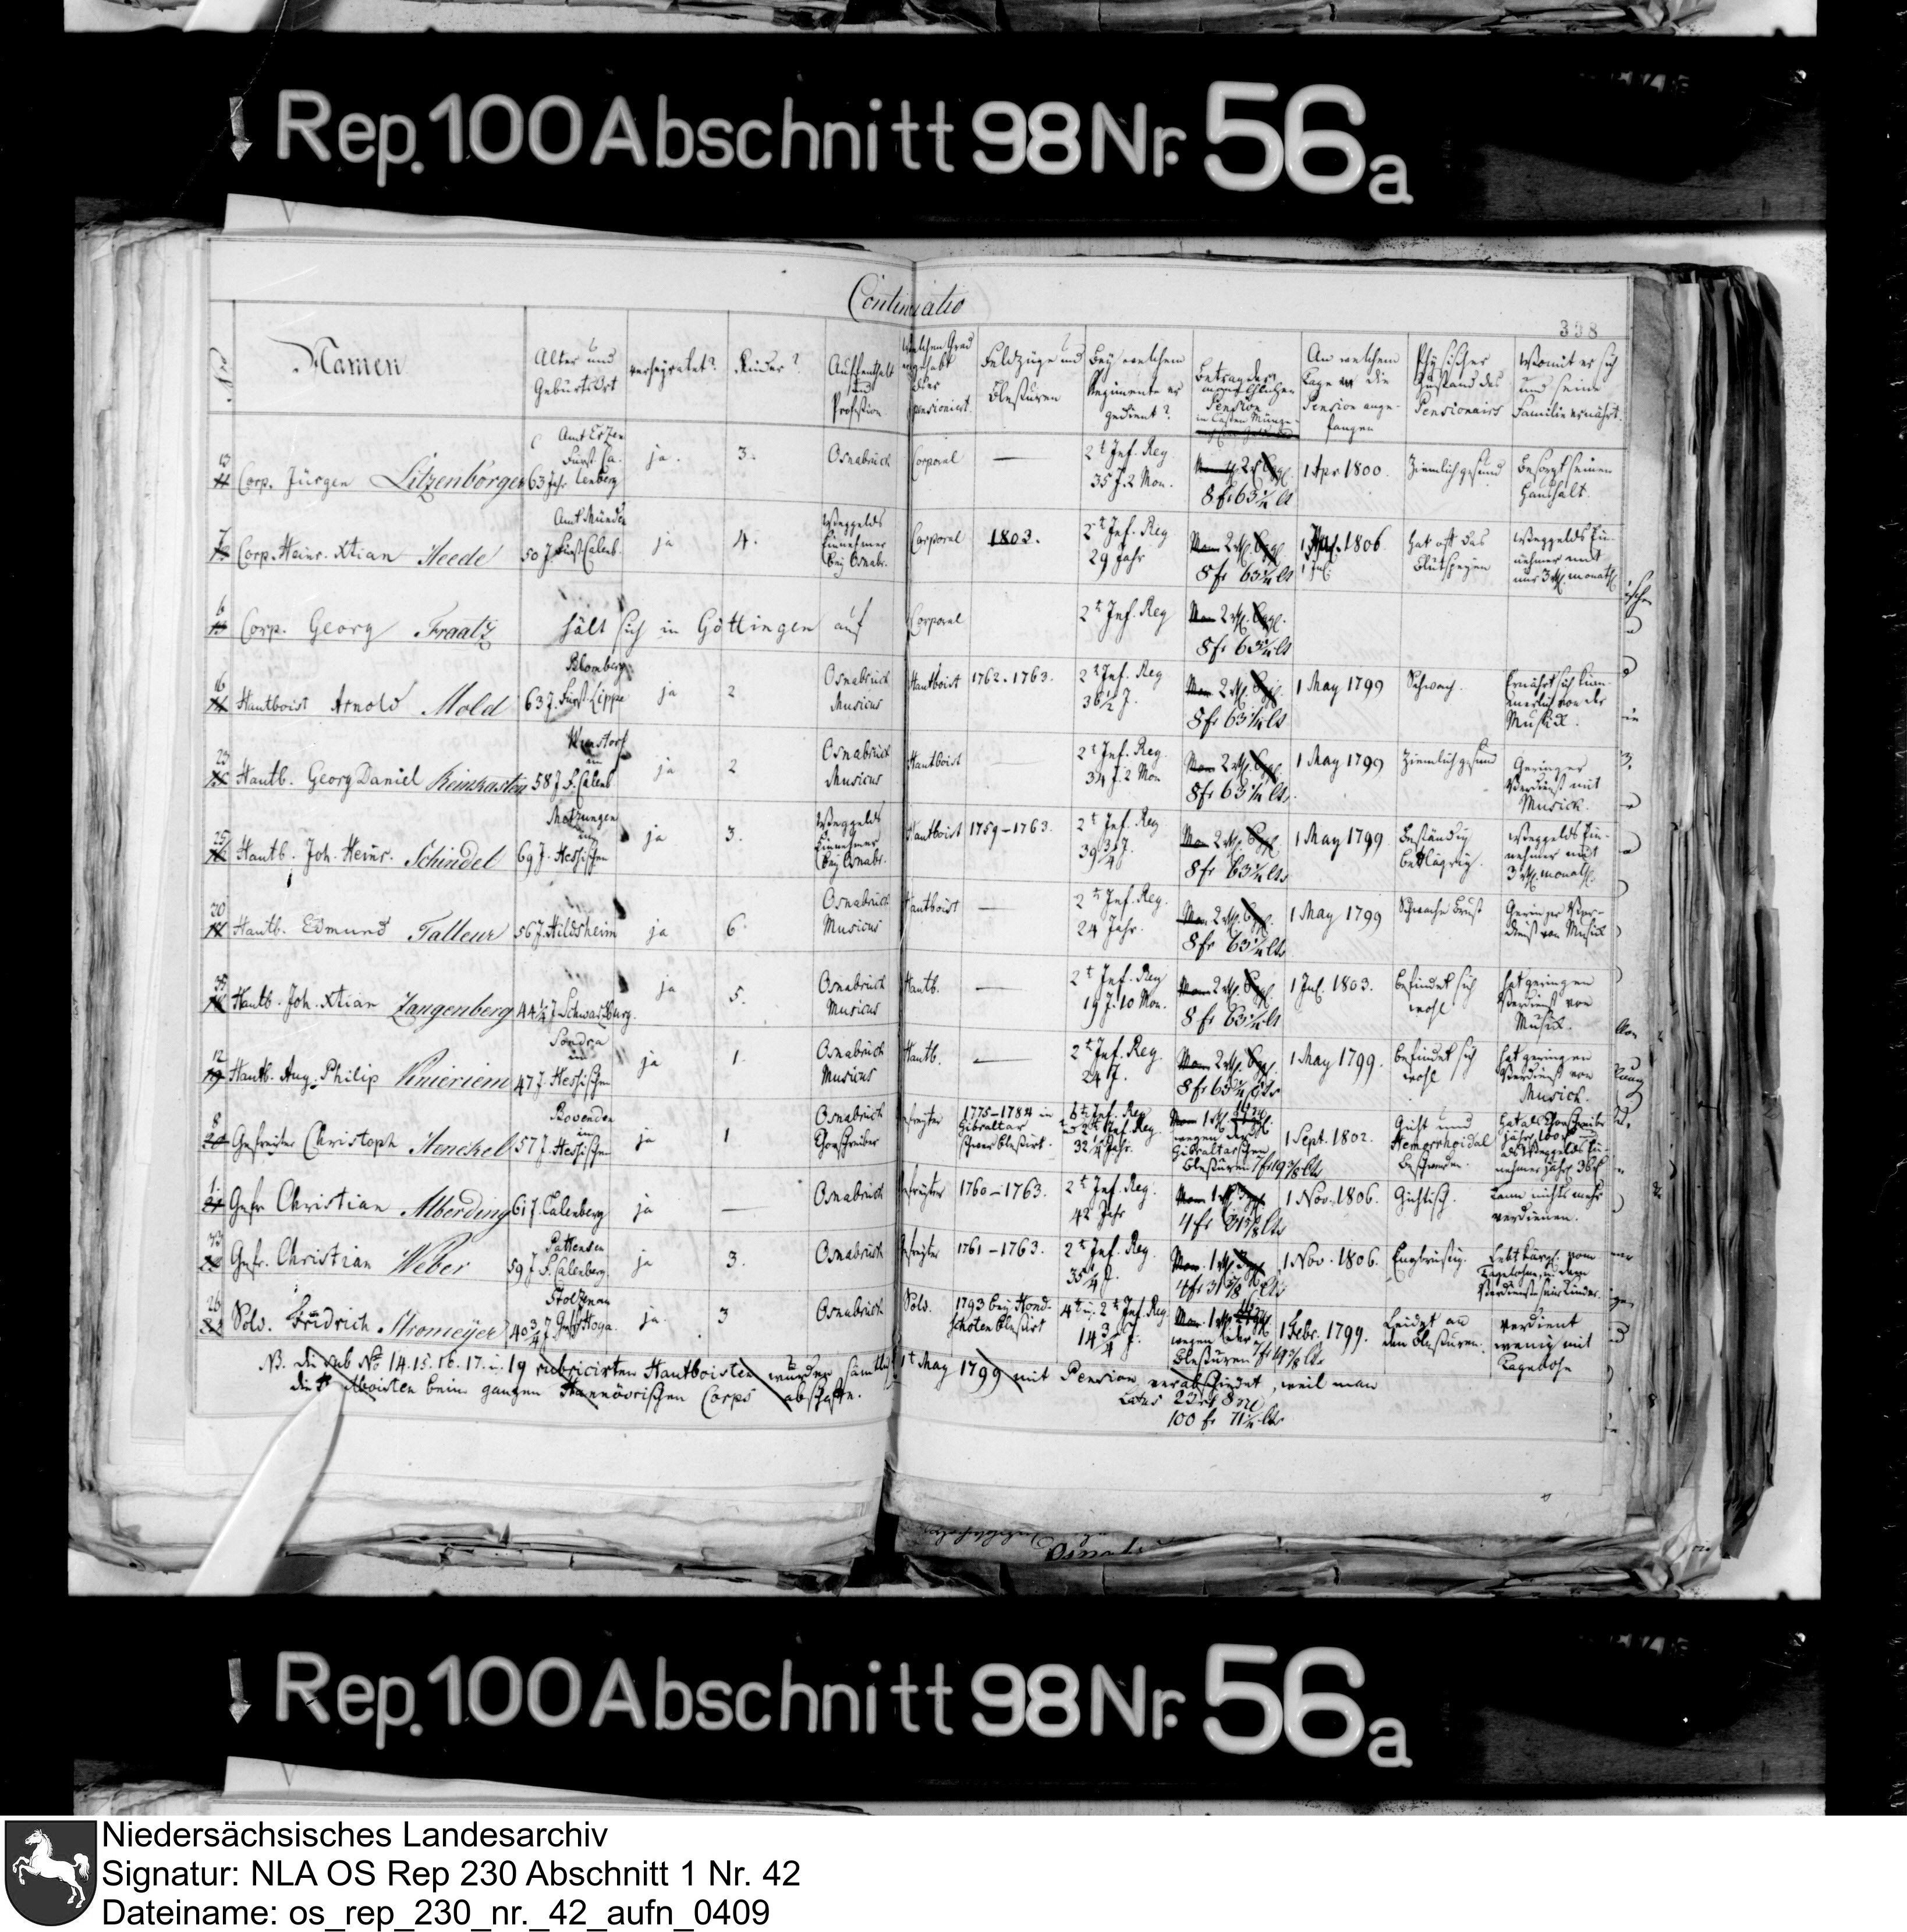 ↓ Rep. 100 Abschnitt 98 Nr. 56a
Continuatio
398
Nro
Namen
Alter und
Geburts Ort
verheyratet?
Kinder?
Auffenthalt
und
Profession
welchen Grad
er gehabt
als er
pensioniert.
Feldzüge und
Blessuren
Bey welchem
Regimente er
gedient?
Betrag der
monathlichen
Pension
An welchem
Tage er die
Pension ange-
fangen
Physischer
Zustand des
Pensionairs
Womit er sich
und seine
Familie ernährt.
13
11 Corp. Jürgen Litzenbörger
Amt Erzen
Fürst. Ca-
63 Jahr lenberg
ja.
3.
Osnabrück
Corporal
—
2t Inf. Reg
35 J. 2 Mon.
8 fr 63 1/4 cts
1 Apr 1800.
Ziemlich gesund
Besorgt seinen
Haushalt.
7
12 Corp. Heinr. Xtian Heede
Amt Münden
50 J. Fürst. Calenb.
ja
4.
Weggelds
Einnehmer
bey Osnabr.
Corporal
1803.
2t Inf. Reg
29 Jahr
8 fr 63 1/4 cts
1806.
1 Jul.
hat oft das
Blutspeyen
Weggelds Ein-
nehmer mit
nur 3 rthl. monatl.
6
13 Corp. Georg Fraatz
hält sich in Göttingen auf
Corporal
2t Inf. Reg
8 fr 63 1/4 cts
16
14 Hautboist Arnold Mold
Blomberg
63 J. Fürst. Lippe
ja
2
Osnabrück
Musicus
Hautboist
1762. 1763.
2t Inf. Reg
36 1/2 J.
8 fr 63 1/4 cts
1 May 1799
Schwach.
Ernährt sich küm-
merlich von der
Musik.
23
15 Hautb. Georg Daniel Reinkasten
Wunstorf
im
58 J. F. Calenb
ja
2
Osnabrück
Musicus
Hautboist
—
2t Inf. Reg.
34 J. 2 Mon
8 fr 63 1/4 cts.
1 May 1799
Ziemlich gesund
Geringer
Verdienst mit
Musick.
25
16 Hautb. Joh. Heinr. Schindel
Motzungen
im
69 J. Hessischen
ja
3.
Weggelds
Einnehmer
bey Osnabr.
Hautboist
1759-1763.
2t Inf. Reg.
39 3/4 J.
8 fr 63 1/4 cts
1 May 1799
Beständig
bettlägrig.
Weggelds Ein-
nehmer mit
3 rthl. monatl.
30
17 Hautb. Edmund Talleur
56 J. Hildsheim
ja
6.
Osnabrück
Musicus
Hautboist
—
2t Inf. Reg.
24 Jahr.
8 fr 63 1/4 cts
1 May 1799
Schwache Brust
Geringer Ver-
dienst von Musik
35
18 Hautb. Joh. Xtian Zangenberg
44 1/2 J. Schwarzburg.
ja
5.
Osnabrück
Musicus
Hautb.
—
2t Inf. Reg
19 J. 10 Mon.
8 fr 63 1/4 cts
1 Jul. 1803.
befindet sich
wohl
hat geringen
Verdienst von
Musik.
12
19 Hautb. Aug. Philip Knieriem
Sondra
im
47 J. Hessischen
ja
1.
Osnabrück
Musicus
Hautb.
—
2t Inf. Reg.
24 J.
8 fr 63 1/4 cts
1 May 1799.
befindet sich
wohl
hat geringen
Verdienst von
Musick.
8
20 Gefreiter Christoph Henckel
Bovenden
im
57 J. Hessischen
ja
1.
Osnabrück
Thorschreiber
Gefreyter
1775-1784 in
Gibraltar
schwer blessirt.
6t Inf. Reg
und 2t Inf. Reg.
32 1/4 Jahr.
wegen der
Gibraltarschen
Blessuren 7 fr 19 3/8 cts
1 Sept. 1802.
Gicht und
Hemorrhoidal
Beschwerden.
hat als Thorschreiber
jährl. 100 rt
als Weggelds Ein-
nehmer jährl. 36 rt
1.
21 Gefr Christian Alberding
61 J. Calenberg
ja
—
Osnabrück
Gefreyter
1760-1763.
2t Inf. Reg.
42 Jahr
4 fr 31 5/8 cts
1 Nov. 1806.
Gichtisch.
Kann nichts mehr
verdienen.
33
22 Gefr. Christian Weber
Pattensen
59 J. F. Calenberg.
ja
3.
Osnabrück
Gefreyter
1761-1763.
2t Inf. Reg.
35 1/4 J.
4 fr 31 5/8 cts
1 Nov. 1806.
Engbrüstig.
Lebt kärgl. vom
Tagelohn, u. dem
Verdienst sein. Kinder.
26
23 Sold. Friedrich Stromeyer
Stoltzenau
40 3/4 J. Grfs. Hoya.
ja.
3
Osnabrück
Sold.
1793 bey Hond-
schoten blessirt
4t u. 2t Inf. Reg.
14 3/4 J.
wegen der
Blessuren 7 fr 19 3/8 cts
1 Febr. 1799.
Leidet an
den Blessuren.
verdient
wenig mit
Tagelohn
NB. die sub No 14. 15. 16. 17. u. 19 rubricirten Hautboisten wurden sämtlich 1t May 1799 mit Pension verabschiedet, weil man
die Hboisten beim ganzen Hannövrischen Corps abschafte.
Latus 23 rt 8 gg
100 fr 71 1/4 cts
↓ Rep. 100 Abschnitt 98 Nr. 56a
Niedersächsisches Landesarchiv
Signatur: NLA OS Rep 230 Abschnitt 1 Nr. 42
Dateiname: os_rep_230_nr._42_aufn_0409